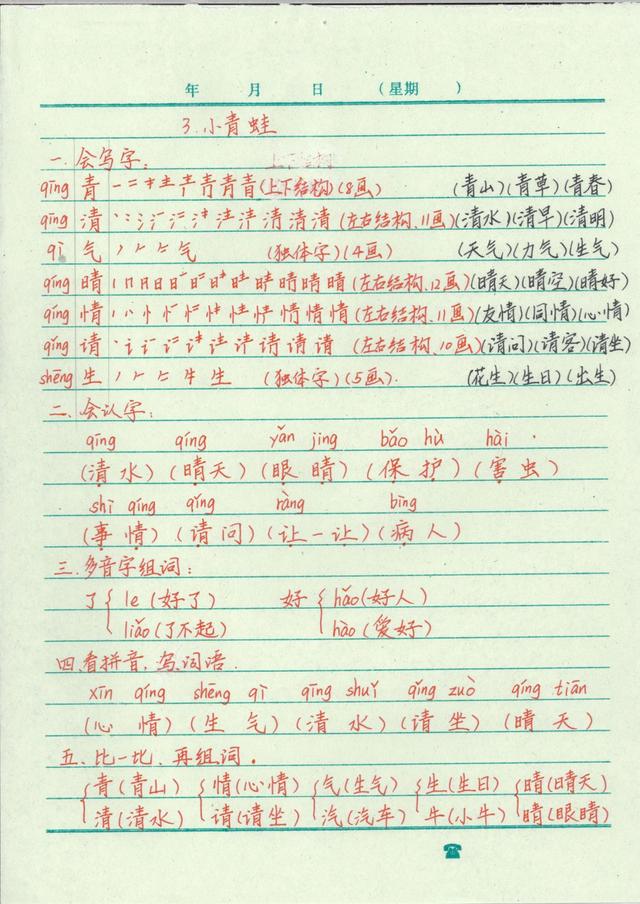 年 月 日 (星期 )
3.小青蛙
一.会写字:
qīng 青 一 二 丰 青 青 (上下结构)(8画) (青山)(青草)(青春)
qīng 清 清 清 清 (左右结构、11画)(清水)(清早)(清明)
qì 气 丿 𠂉 气 (独体字)(4画) (天气)(力气)(生气)
qíng 晴 丨 冂 日 日 晴 晴 晴 (左右结构、12画)(晴天)(晴空)(晴好)
qíng 情 情 情 情 (左右结构、11画)(友情)(同情)(心情)
qǐng 请 请 请 请 (左右结构、10画)(请问)(请客)(请坐)
shēng 生 丿 𠂉 牛 生 (独体字)(5画). (花生)(生日)(出生)
二.会认字:
qīng qíng yǎn jing bǎo hù hài
(清水)(晴天)(眼睛)(保护)(害虫)
shì qíng qǐng ràng bìng
(事情)(请问)(让一让)(病人)
三.多音字组词:
了{ le (好了) 好{ hǎo(好人)
liǎo(了不起) hào(爱好)
四.看拼音,写词语.
xīn qíng shēng qì qīng shuǐ qǐng zuò qíng tiān
(心情)(生气)(清水)(请坐)(晴天)
五.比一比,再组词.
{青(青山) {情(心情) {气(生气) {生(生日) {晴(晴天)
清(清水) 请(请坐) 汽(汽车) 牛(小牛) 睛(眼睛)